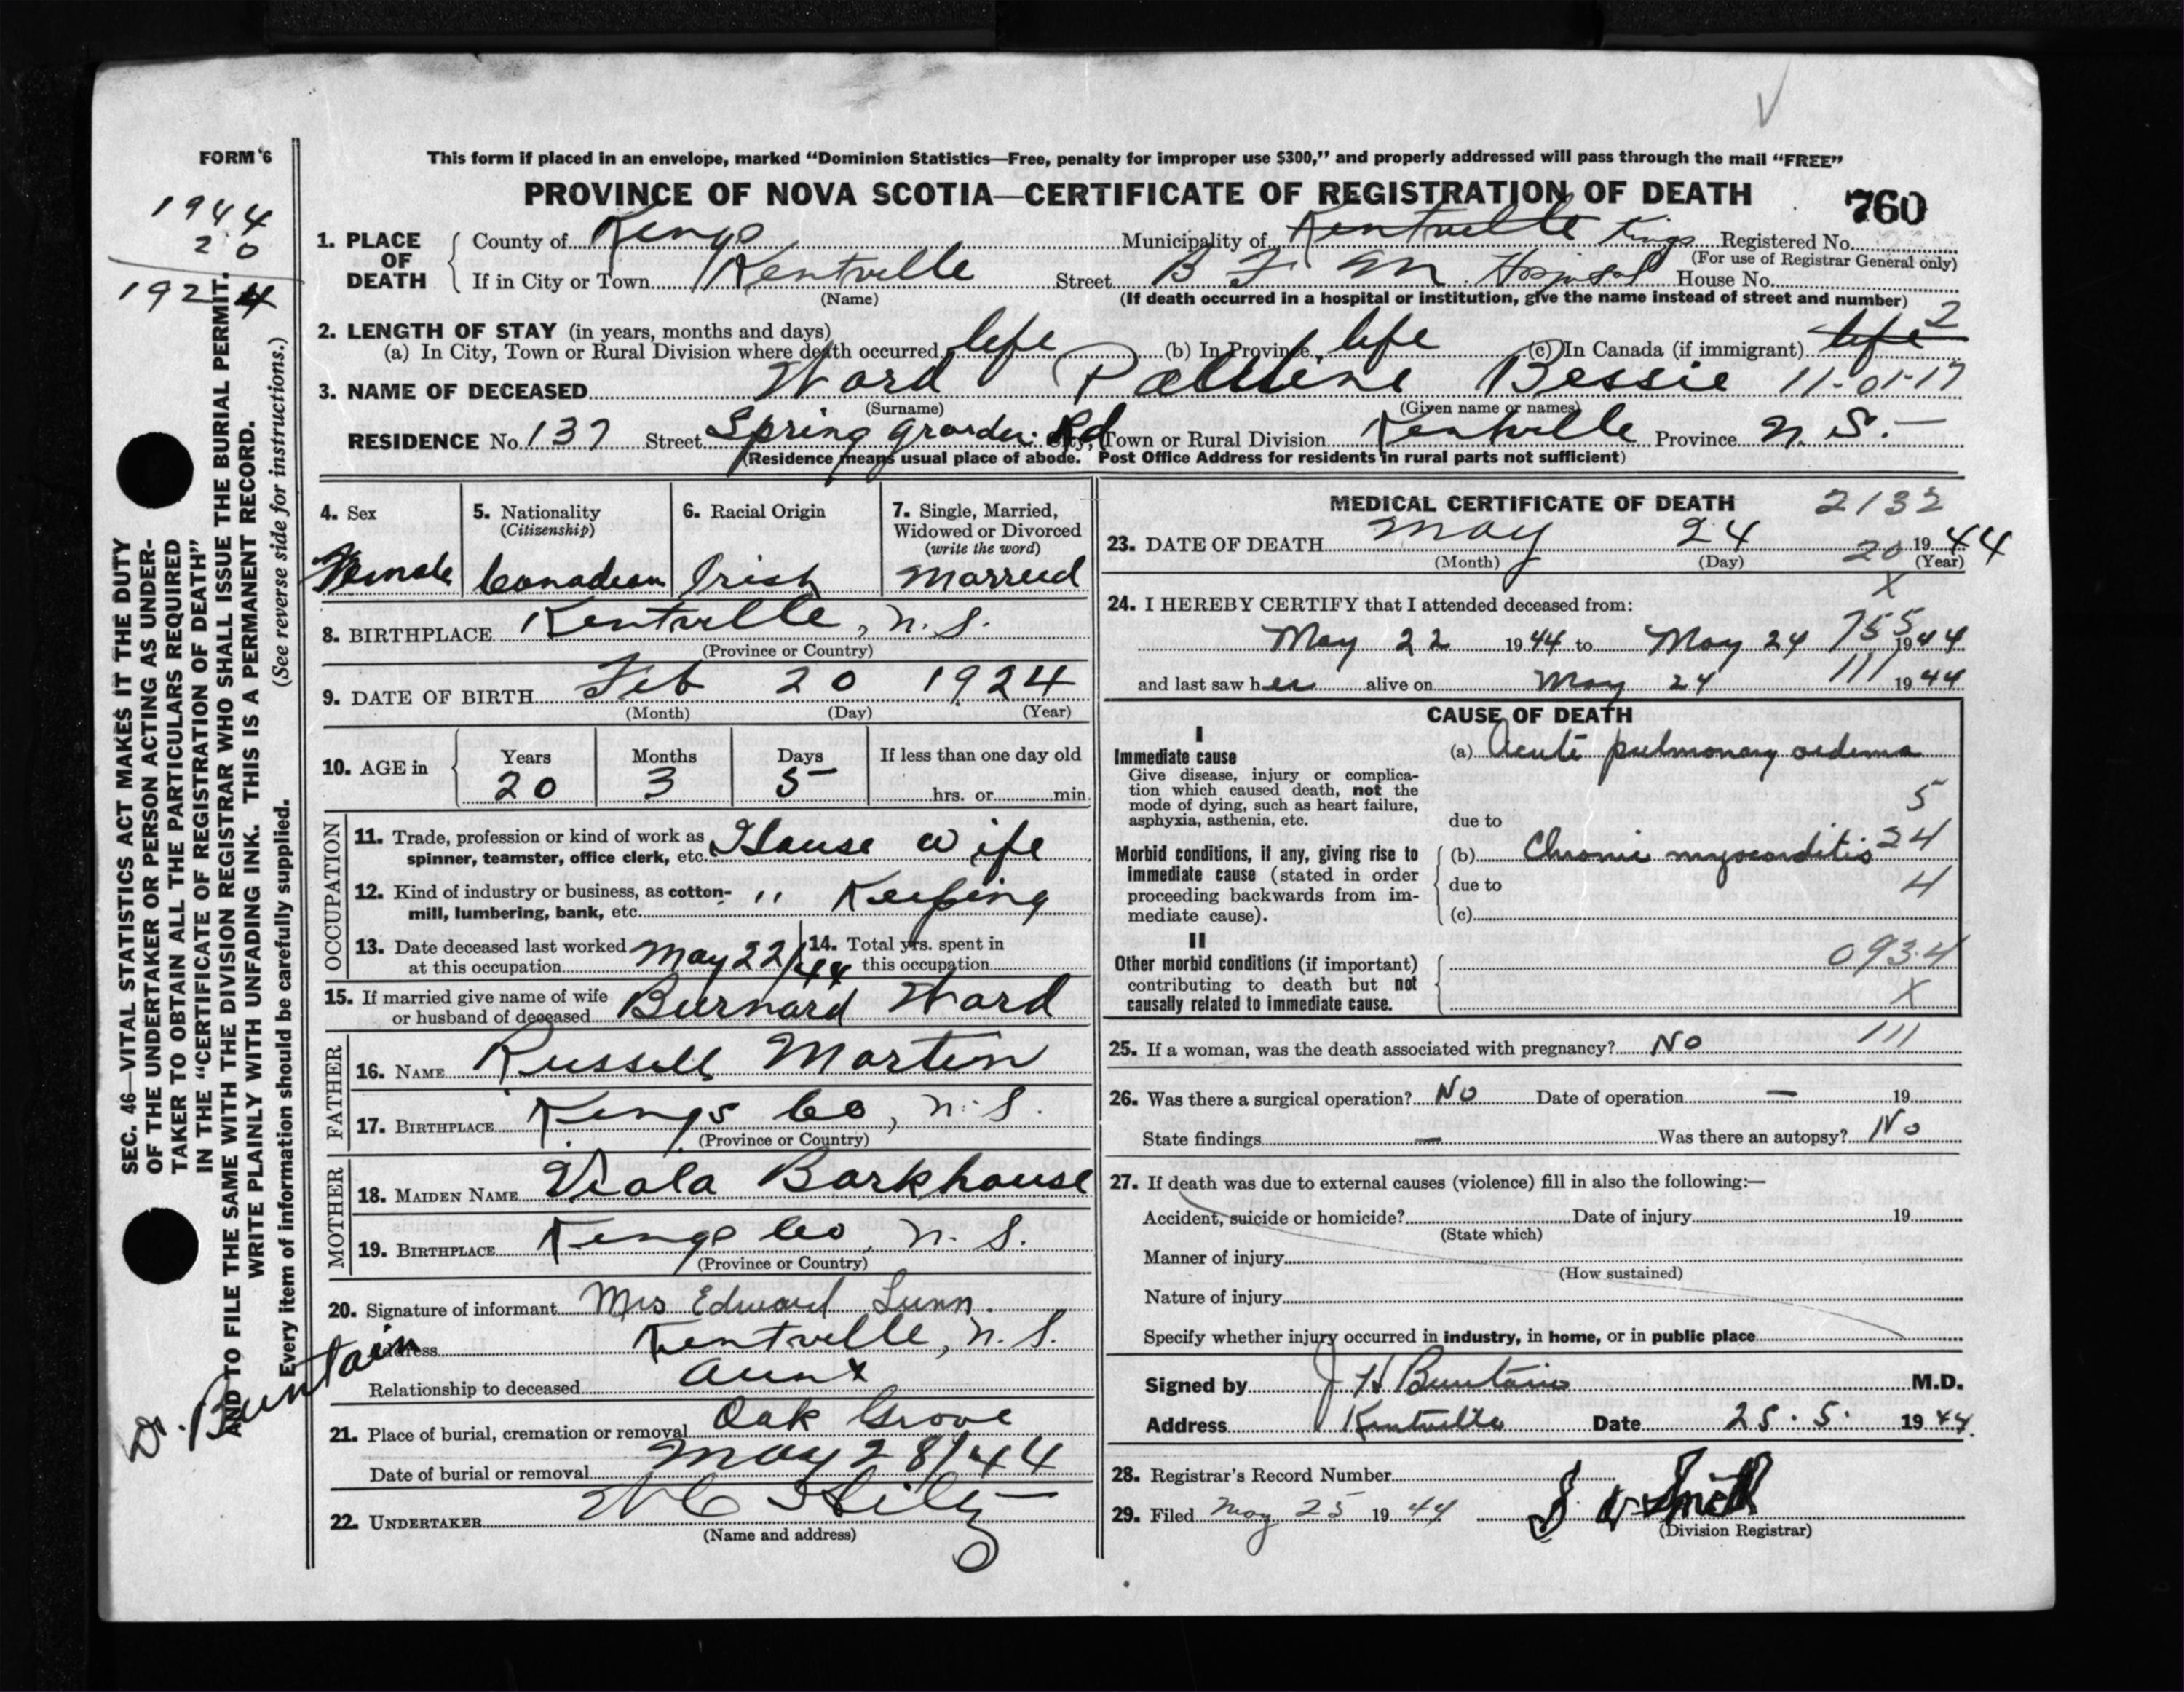 FORM 6
This form if placed in an envelope, marked “Dominion Statistics—Free, penalty for improper use $300,” and properly addressed will pass through the mail “FREE”
PROVINCE OF NOVA SCOTIA—CERTIFICATE OF REGISTRATION OF DEATH
760
1944
20
1924
1. PLACE OF DEATH
County of Kings Municipality of Kentville Kings Registered No.
(For use of Registrar General only)
If in City or Town Kentville Street B F M Hospital House No.
(Name) (If death occurred in a hospital or institution, give the name instead of street and number)
2. LENGTH OF STAY (in years, months and days) 2
(a) In City, Town or Rural Division where death occurred life (b) In Province life (c) In Canada (if immigrant) life
3. NAME OF DECEASED Ward Pauline Bessie 11-01-17
(Surname) (Given name or names)
RESIDENCE No. 137 Street Spring Grarden Rd City, Town or Rural Division Kentville Province N. S.
(Residence means usual place of abode. Post Office Address for residents in rural parts not sufficient)
4. Sex
Female
5. Nationality
(Citizenship)
Canadian
6. Racial Origin
Irish
7. Single, Married,
Widowed or Divorced
(write the word)
Married
8. BIRTHPLACE Kentville, N.S.
(Province or Country)
9. DATE OF BIRTH Feb 20 1924
(Month) (Day) (Year)
10. AGE in
Years Months Days If less than one day old
20 3 5 hrs. or min.
OCCUPATION
11. Trade, profession or kind of work as
spinner, teamster, office clerk, etc. House wife
12. Kind of industry or business, as cotton-
mill, lumbering, bank, etc. " Keeping
13. Date deceased last worked
at this occupation May 22/44
14. Total yrs. spent in
this occupation
15. If married give name of wife
or husband of deceased Burnard Ward
FATHER
16. NAME Russell Martin
17. BIRTHPLACE Kings Co, N.S.
(Province or Country)
MOTHER
18. MAIDEN NAME Viola Barkhouse
19. BIRTHPLACE Kings Co, N.S.
(Province or Country)
20. Signature of informant Mrs Edward Lunn
Address Kentville, N.S.
Relationship to deceased Aunt
21. Place of burial, cremation or removal Oak Grove
Date of burial or removal May 28/44
22. UNDERTAKER W C Hiltz
(Name and address)
MEDICAL CERTIFICATE OF DEATH 2132
23. DATE OF DEATH May 24 20 1944
(Month) (Day) (Year)
X
24. I HEREBY CERTIFY that I attended deceased from:
755
May 22 1944 to May 24 1944
and last saw her alive on May 24 111 1944
CAUSE OF DEATH
I
Immediate cause
Give disease, injury or complica-
tion which caused death, not the
mode of dying, such as heart failure,
asphyxia, asthenia, etc.
(a) Acute pulmonary oedema
5
due to
Morbid conditions, if any, giving rise to
immediate cause (stated in order
proceeding backwards from im-
mediate cause).
(b) Chronic myocarditis 24
due to 4
(c)
II
Other morbid conditions (if important)
contributing to death but not
causally related to immediate cause.
093.4
X
111
25. If a woman, was the death associated with pregnancy? No
26. Was there a surgical operation? No Date of operation — 19
State findings — Was there an autopsy? No
27. If death was due to external causes (violence) fill in also the following:—
Accident, suicide or homicide? Date of injury 19
(State which)
Manner of injury
(How sustained)
Nature of injury
Specify whether injury occurred in industry, in home, or in public place
Signed by J H Buntain M.D.
Address Kentville Date 25. 5. 1944.
28. Registrar's Record Number
29. Filed May 25 1944
(Division Registrar)
SEC. 46—VITAL STATISTICS ACT MAKES IT THE DUTY
OF THE UNDERTAKER OR PERSON ACTING AS UNDER-
TAKER TO OBTAIN ALL THE PARTICULARS REQUIRED
IN THE “CERTIFICATE OF REGISTRATION OF DEATH”
AND TO FILE THE SAME WITH THE DIVISION REGISTRAR WHO SHALL ISSUE THE BURIAL PERMIT.
WRITE PLAINLY WITH UNFADING INK. THIS IS A PERMANENT RECORD.
(See reverse side for instructions.)
Every item of information should be carefully supplied.
Dr. Buntain